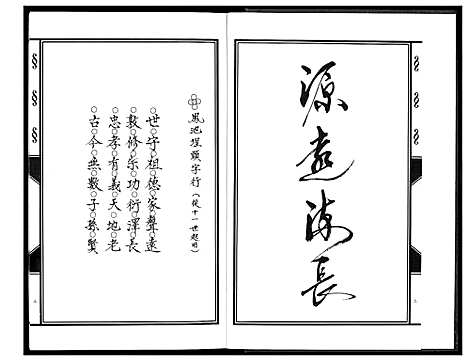 源遠流長
鳳池埕頭字行(從十一世起用)
世守祖德家聲遠
敦修宗功衍澤長
忠孝有義天地老
古今無數子孫賢